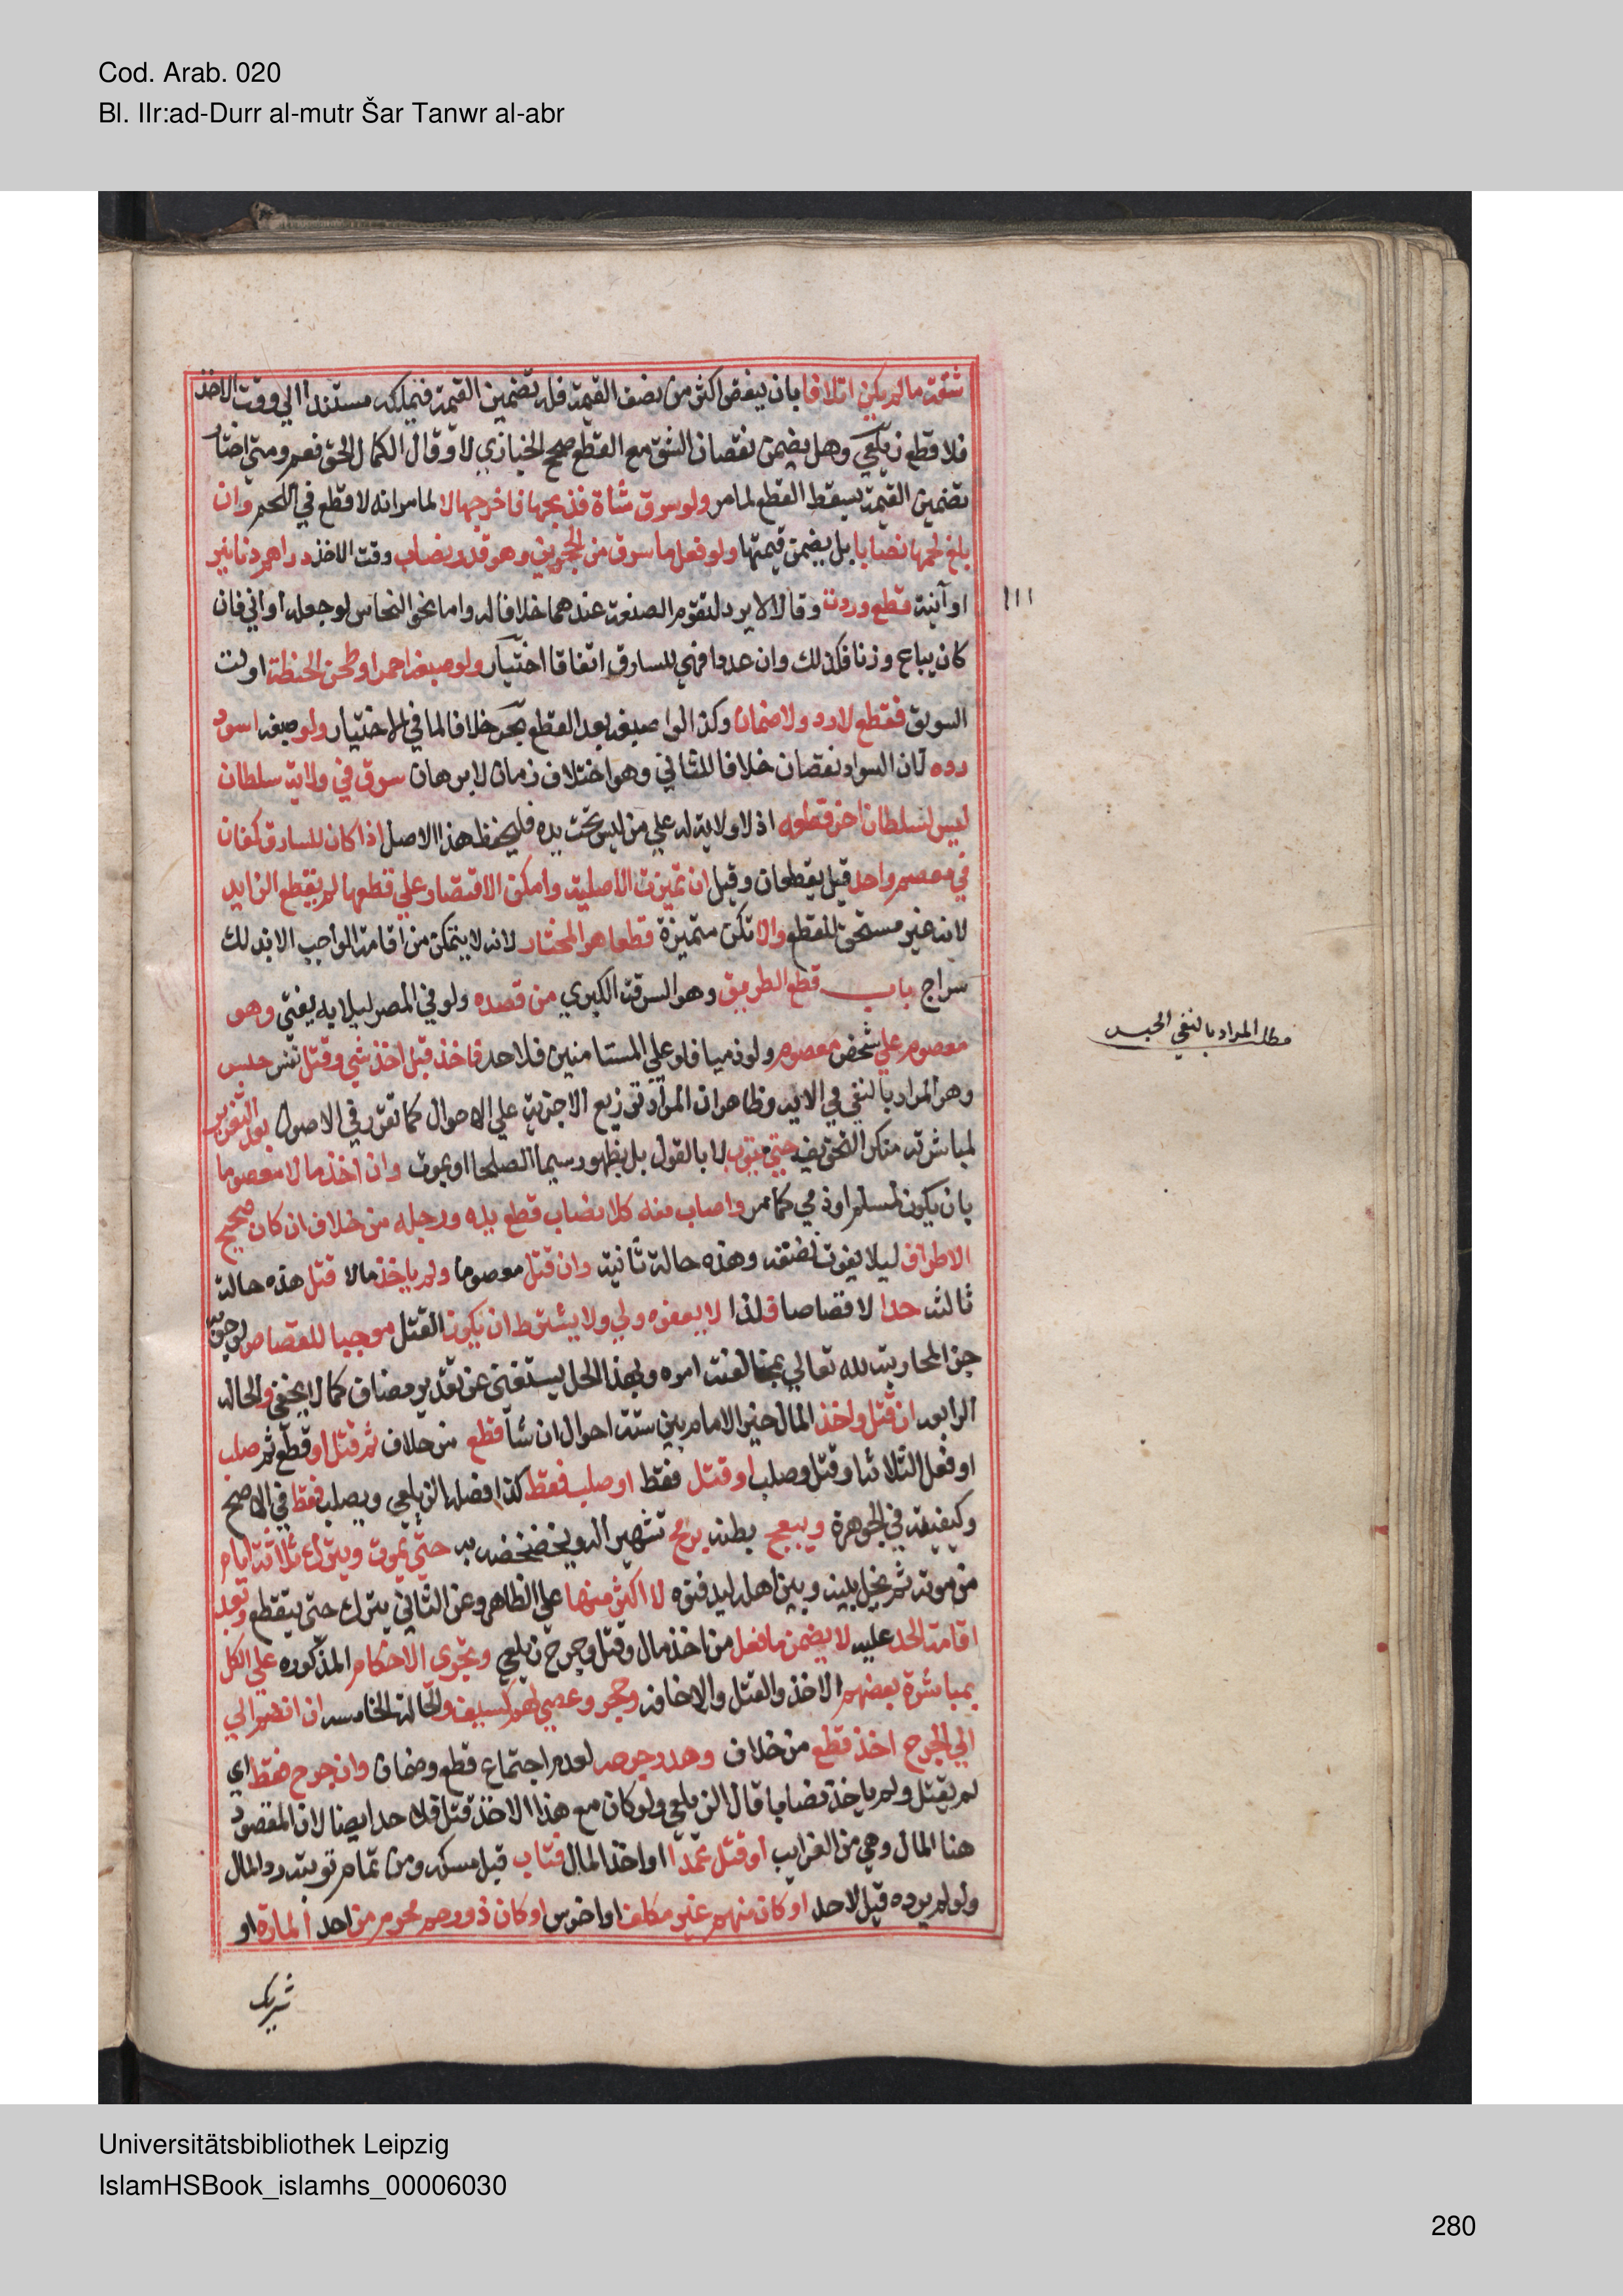 Cod. Arab. 020
Bl. IIr:ad-Durr al-mutr Šar Tanwr al-abr
شقه ما لم يكن اتلافا بان ينقص اكثر من نصف القيمة فله تضمين القيمة فيملكه مستندا الي وقت الاخذ
فلا قطع زيلعي وهل يضمن نقصان الشق مع القطع صحح الخبازي لا وقال الكمال الحق نعم ومتي اختار
تضمين القيمة يسقط القطع لما مر ولو سرق شأة فذبحها فاخرجها لا لما مر انه لا قطع في اللحم وان
بلغ لحمها نصابا بل يضمن قيمتها ولو فعل ما سرق من الحجرين وهو قدر نصاب وقت الاخذ دراهم دنانير
او آنية قطع وردت وقالا لا يرد لتقوم الصنعة عندهما خلافا له واما نحو النحاس لو جعله اواني فان
كان يباع وزنا فكذلك وان عددا فهي للسارق اتفاقا اختيار ولو صبغه احمر او طحن الحنطة او لت
السويق فقطع لا رد ولا ضمان وكذا لو اصبغه بعد القطع بحر خلافا لما في الاختيار ولو صبغه اسود
رده لان السواد نقصان خلافا للثاني وهو اختلاف زمان لا برهان سرق في ولاية سلطان
ليس لسلطان اخر قطعه اذ لا ولاية له علي من ليس تحت يده فليحفظ هذا الاصل اذا كان للسارق كفان
في معصم واحد قيل يقطعان وقيل ان تميزت الاصلية وامكن الاقتصار علي قطعها لم يقطع الزايد
لانه غير مستحق للقطع والا تكن متميزة قطعا هو المختار لانه لا يتمكن من اقامة الواجب الا بذلك
سراج باب قطع الطريق وهو السرقة الكبري من قصده ولو في المصر ليلا به يفتي وهو
معصوم علي شخص معصوم ولو ذميا فلو علي المستامنين فلا حد فاخذ قبل اخذ شي وقتل نفس حبس
وهو المراد بالنفي في الاية وظاهر ان المراد توزيع الاجزية علي الاحوال كما تقرر في الاصول بعد التعزير
لمباشرته منكر التخويف حتي يتوب لا بالقول بل بظهور سيما الصلحا او يموت وان اخذ مالا معصوما
بان يكون لمسلم او ذمي كما مر واصاب منه كلا نصاب قطع يده ورجله من خلاف ان كان صحيح
الاطراف ليلا يفوت نفعه وهذه حالة ثانية وان قتل معصوما ولم ياخذ مالا قتل هذه حالة
ثالثه حدا لا قصاصا فلذا لا يعفوه ولي ولا يشترط ان يكون القتل موجبا للقصاص لوجوبه
جزا لمحاربته لله تعالي بمخالفت امره وبهذا الحل يستغني عن تقدير مضاف كما لا يخفي والحاله
الرابعه ان قتل واخذ المال خير الامام بين ستة احوال ان شأ قطع من خلاف ثم قتل او قطع ثم صلب
او فعل الثلاثة او قتل وصلب او قتل فقط او صلب فقط كذا فصله الزيلعي ويصلب فقط في الاصح
وكيفيته في الجوهرة ويبعج بطنه برمح تشهيرا له ويخضخضه به حتي يموت ويترك ثلاثة ايام
من موته ثم يخلي بينه وبين اهله ليدفنوه لا اكثر منها علي الظاهر وعن الثاني يترك حتي يتقطع وبعد
اقامة الحد عليه لا يضمن ما فعل من اخذ مال وقتل وجرح زيلعي وتجري الاحكام المذكوره علي الكل
بمباشرة بعضهم الاخذ والقتل والاخافه وحجر وعصي لهم كسيف والحالة الخامسه ان انضم الي
الي الجرح اخذ قطع من خلاف وهدر جرحه لعدم اجتماع قطع وضمان وان جرح فقط اي
لم يقتل ولم ياخذ نصابا قال الزيلعي ولو كان مع هذا الاخذ قتل فلا حد ايضا لان المقصود
هنا المال وهي من الغرايب او قتل عمدا او اخذ المال فتاب قبل مسكه ومن تمام توبته رد المال
ولو لم يرده قيل لا حد او كان منهم غير مكلف او اخرس او كان ذو رحم محرم من احد المارة او
شريك
١١١
مطلب المراد بالنفي الحبس
Universitätsbibliothek Leipzig
IslamHSBook_islamhs_00006030
280